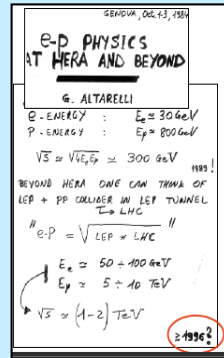 GENOVA, Oct. 1-3, 1984
e-p PHYSICS
AT HERA AND BEYOND
G. ALTARELLI
e-ENERGY : Ee ≃ 30 GeV
P-ENERGY : Ep ≃ 800 GeV
√S ≃ √4EeEp ≃ 300 GeV
1989!
BEYOND HERA ONE CAN THINK OF
LEP + PP COLLIDER IN LEP TUNNEL
↳ LHC
"e-P = √LEP * LHC"
Ee ≃ 50 ÷ 100 GeV
Ep ≃ 5 ÷ 10 TeV
√S ≃ (1-2) TeV
≥1996?